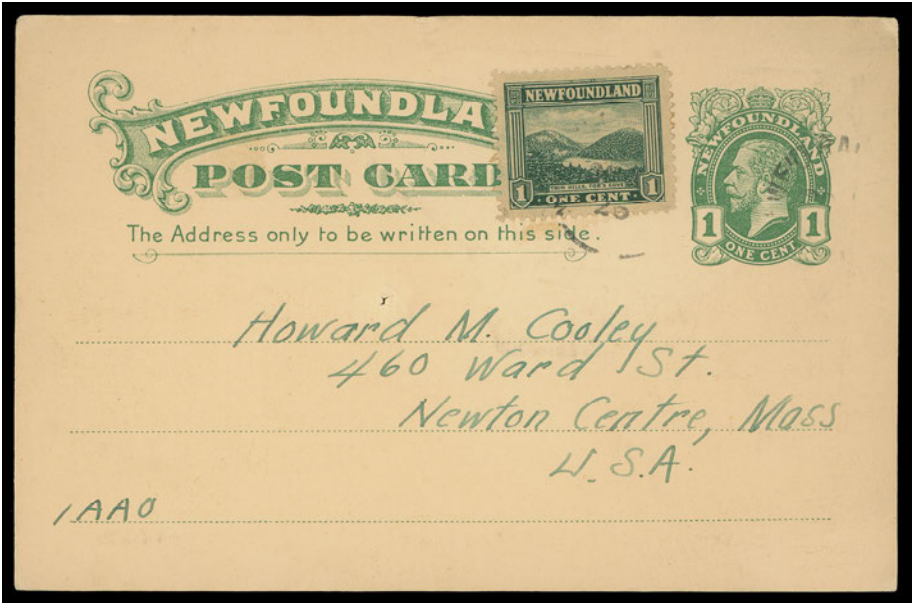 NEWFOUNDLA
POST CARD
The Address only to be written on this side.
NEWFOUNDLAND
TWIN HILLS, TOR'S COVE
1 ONE CENT 1
NEWFOUNDLAND
1 1
ONE CENT
26
Howard M. Cooley
460 Ward St.
Newton Centre, Mass
U.S.A.
1AAO